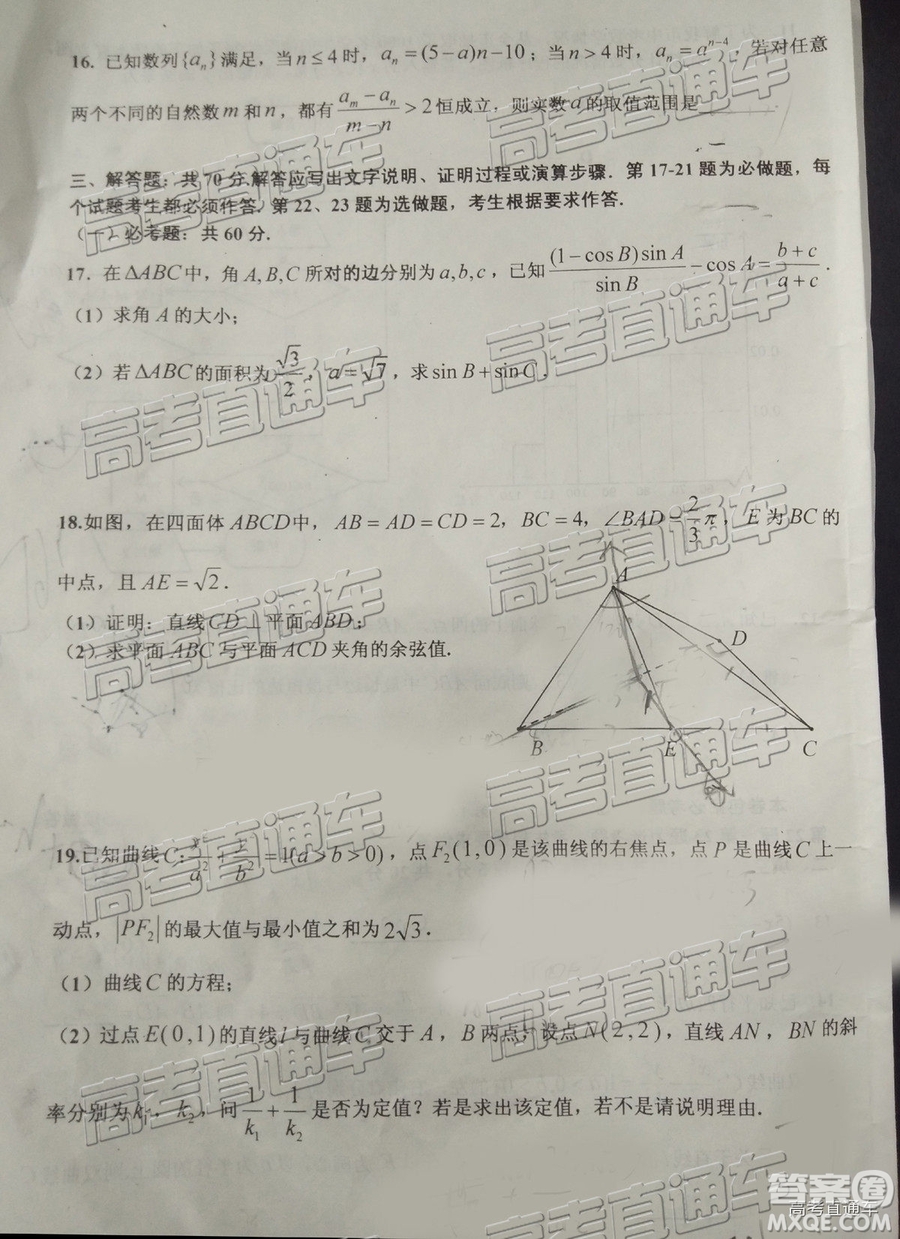 16. 已知数列{aₙ}满足，当 n≤4 时，aₙ=(5−a)n−10；当 n>4 时，aₙ=aⁿ⁻⁴，若对任意
两个不同的自然数 m 和 n，都有 (aₘ−aₙ)/(m−n) >2 恒成立，则实数 a 的取值范围是
三、解答题：共 70 分.解答应写出文字说明、证明过程或演算步骤．第 17-21 题为必做题，每
个试题考生都必须作答. 第 22、23 题为选做题，考生根据要求作答.
（一）必考题：共 60 分.
17. 在ΔABC中，角 A,B,C 所对的边分别为 a,b,c，已知 (1−cos B)sin A/sin B − cos A = (b+c)/(a+c)．
（1）求角 A 的大小；
（2）若ΔABC的面积为 √3/2，a=√7，求sin B+sin C．
18.如图，在四面体 ABCD中，AB=AD=CD=2，BC=4，∠BAD=2/3 π，E 为 BC 的
中点，且 AE=√2．
（1）证明：直线CD⊥平面 ABD；
（2）求平面 ABC 与平面 ACD 夹角的余弦值.
A
D
B
E
C
19.已知曲线C: x²/a²+y²/b²=1(a>b>0)，点 F₂(1,0) 是该曲线的右焦点，点 P 是曲线 C 上一
动点，|PF₂| 的最大值与最小值之和为 2√3．
（1）曲线 C 的方程；
（2）过点 E(0,1) 的直线 l 与曲线 C 交于 A，B 两点，设点 N(2,2)，直线 AN，BN 的斜
率分别为 k₁，k₂，问 1/k₁+1/k₂ 是否为定值？若是求出该定值，若不是请说明理由.
高考直通车
高考直通车
高考直通车
高考直通车
高考直通车
高考直通车
高考直通车
高考直通车
高考直通车
高考直通车
高考直通车
高考直通车
答案圈
高考直通车
MXQE.COM